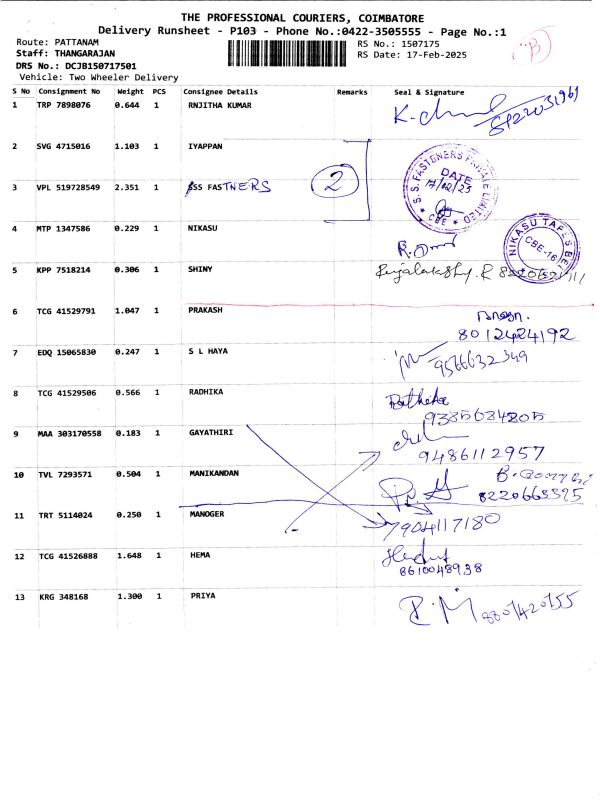 THE PROFESSIONAL COURIERS, COIMBATORE
Delivery Runsheet - P103 - Phone No.:0422-3505555 - Page No.:1
Route: PATTANAM RS No.: 1507175
Staff: THANGARAJAN RS Date: 17-Feb-2025
DRS No.: DCJB150717501
Vehicle: Two Wheeler Delivery
S No Consignment No Weight PCS Consignee Details Remarks Seal & Signature
1 TRP 7898076 0.644 1 RNJITHA KUMAR
2 SVG 4715016 1.103 1 IYAPPAN
3 VPL 519728549 2.351 1 SSS FASTNERS 2
S.S. FASTENERS PRIVATE LIMITED
DATE
17/02/25
CBE
4 MTP 1347586 0.229 1 NIKASU
CBE-16
5 KPP 7518214 0.306 1 SHINY
6 TCG 41529791 1.047 1 PRAKASH
8012424192
7 EDQ 15065830 0.247 1 S L HAYA
9566632349
8 TCG 41529506 0.566 1 RADHIKA
9385684205
9 MAA 303170558 0.183 1 GAYATHIRI
9486112957
10 TVL 7293571 0.504 1 MANIKANDAN
11 TRT 5114024 0.250 1 MANOGER
7904117180
12 TCG 41526888 1.648 1 HEMA
8610048938
13 KRG 348168 1.300 1 PRIYA